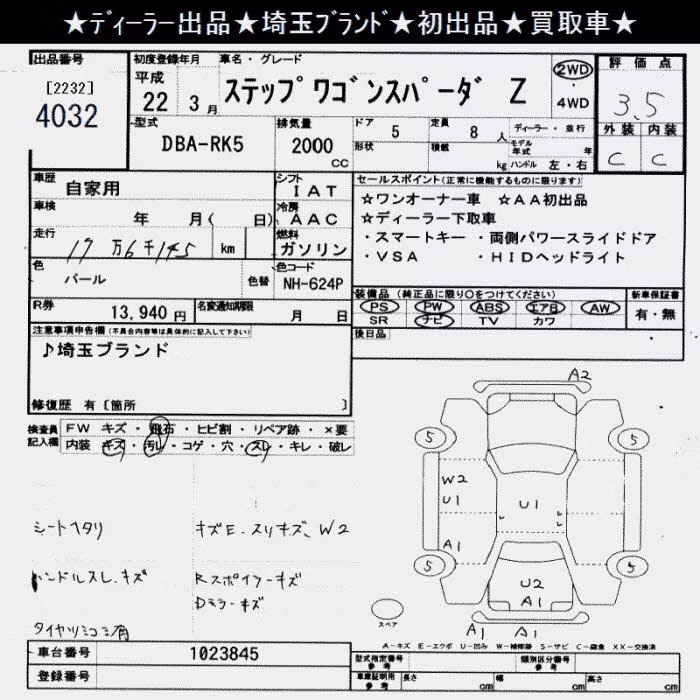 ★ディーラー出品★埼玉ブランド★初出品★買取車★
出品番号
[2232]
4032
初度登録年月
平成
22 3月
車名・グレード
ステップワゴンスパーダ Z
2WD
・
4WD
評価点
3.5
外装 内装
C C
型式
DBA-RK5
排気量
2000
CC
ドア 5
形状
定員 8 人
積載 kg
ディーラー・並行
モデル年式 年
ハンドル 左・右
車歴
自家用
シフト
IAT
車検
年 月( 日)
冷房
AAC
走行
17万6千145
km
燃料
ガソリン
色
パール
色替
色コード
NH-624P
R券
13,940円
名変通知期限
月 日
セールスポイント(正常に機能するものに限ります)
☆ワンオーナー車 ☆AA初出品
☆ディーラー下取車
・スマートキー ・両側パワースライドドア
・VSA ・HIDヘッドライト
装備品(純正品に限り○をつけてください)
PS PW ABS エアB AW
SR ナビ TV カワ
新車保証書
有・無
後日品
注意事項申告欄(不具合内容等は具体的に記入して下さい)
♪埼玉ブランド
修復歴 有[箇所 ]
検査員記入欄
FW キズ・飛石・ヒビ割・リペア跡・×要
内装 キズ・汚レ・コゲ・穴・スレ・キレ・破レ
シートヘタリ
ハンドルスレ.キズ
タイヤツミコミ有
キズE.スリキズ、W2
Rスポイラーキズ
Dミラーキズ
A2
5
5
W2
U1
U1
A1
5
5
U2
A1
A1 A1
スペア
A－キズ E－エクボ U－凹み W－補修跡 S－サビ C－腐食 XX－交換済
車台番号
1023845
登録番号
型式指定番号
参考
類別区分番号
参考
車庫証明用
参考
長さ cm
幅 cm
高さ cm